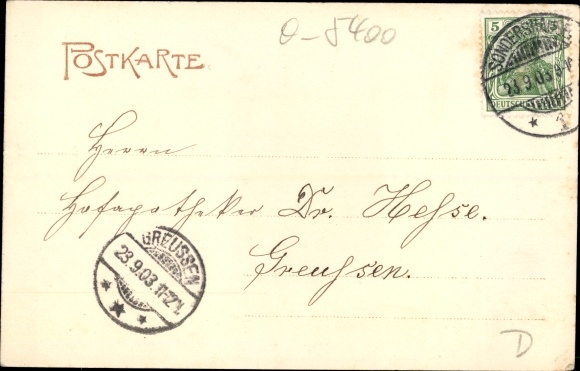 O-5400
POSTKARTE
5
SONDERSHAUSEN
23.9.03.
DEUTSCHES
Herrn
Hofapotheker Dr. Hesse.
Greussen.
GREUSSEN
23.9.03.11-12V.
D